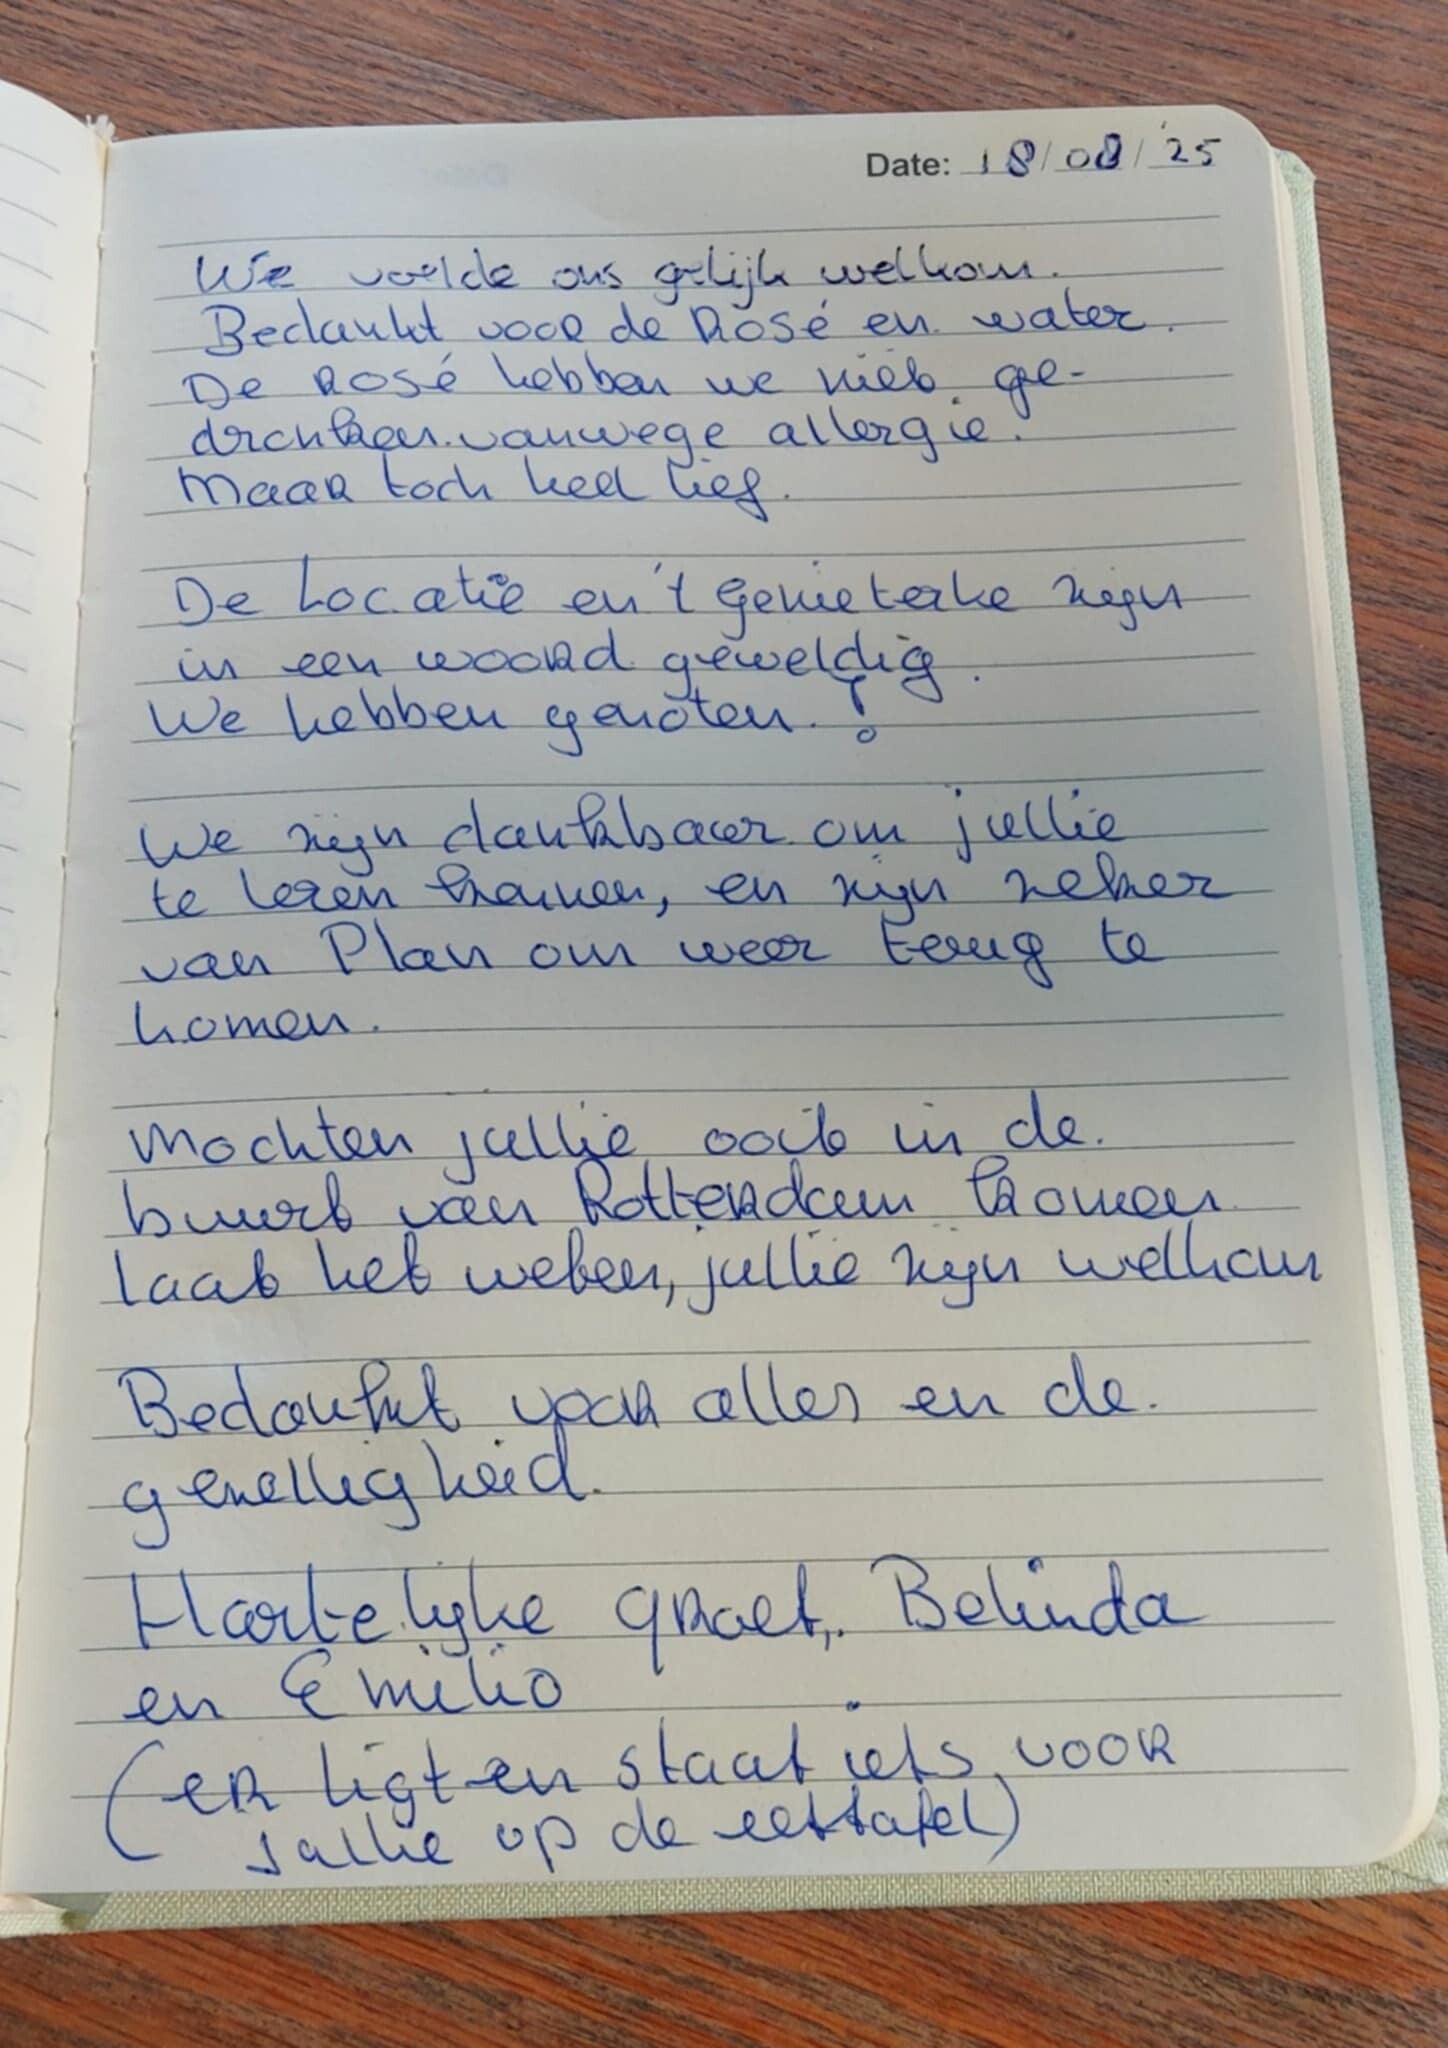 Date: 18/08/'25
We voelde ons gelijk welkom.
Bedankt voor de Rosé en water.
De Rosé hebben we niet ge-
dronken vanwege allergie.
Maar toch heel lief.
De Locatie en 't Genieterke zijn
in een woord geweldig.
We hebben genoten.!
We zijn dankbaar om jullie
te leren kennen, en zijn zeker
van Plan om weer terug te
komen.
Mochten jullie ooit in de.
buurt van Rotterdam komen
laat het weten, jullie zijn welkom
Bedankt voor alles en de.
gezelligheid.
Hartelijke groet, Belinda
en Emilio
(er ligt en staat iets voor
jullie op de eettafel)